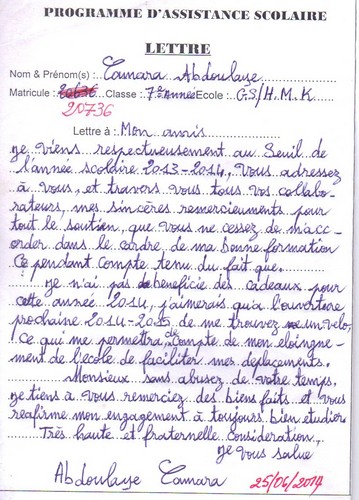 PROGRAMME D'ASSISTANCE SCOLAIRE
LETTRE
Nom & Prénom(s) : Camara Abdoulaye
Matricule : 20636 Classe : 7e Année Ecole : G.S/H.M.K
20736
Lettre à : Mon amis
Je viens respectueusement au Seuil de
l'année scolaire 2013-2014, vous adressez
à vous, et travers vous tous vos collabo-
rateurs, mes sincères remerciements pour
tout le soutien, que vous ne cessez de m'acc-
order dans le cardre, de ma bonne formation
Ce pendant compte tenu du fait que.
Je n'ai pas beneficie des cadeaux pour
cette année 2014, j'aimerais qu'a l'ouvertoire
prochaine 2014-2015 de me trouvez un velo,
Ce qui me permettra de compte de mon eloingne-
ment de l'ecole de faciliter mes deplacements.
Monsieur sans abusez de votre temps.
Je tiens à vous remerciez des biens faits et vous
reafirme mon engagement à toujours bien etudier
Très haute et fraternelle Consideration,
Je vous salue
Abdoulaye Camara 25/06/2014